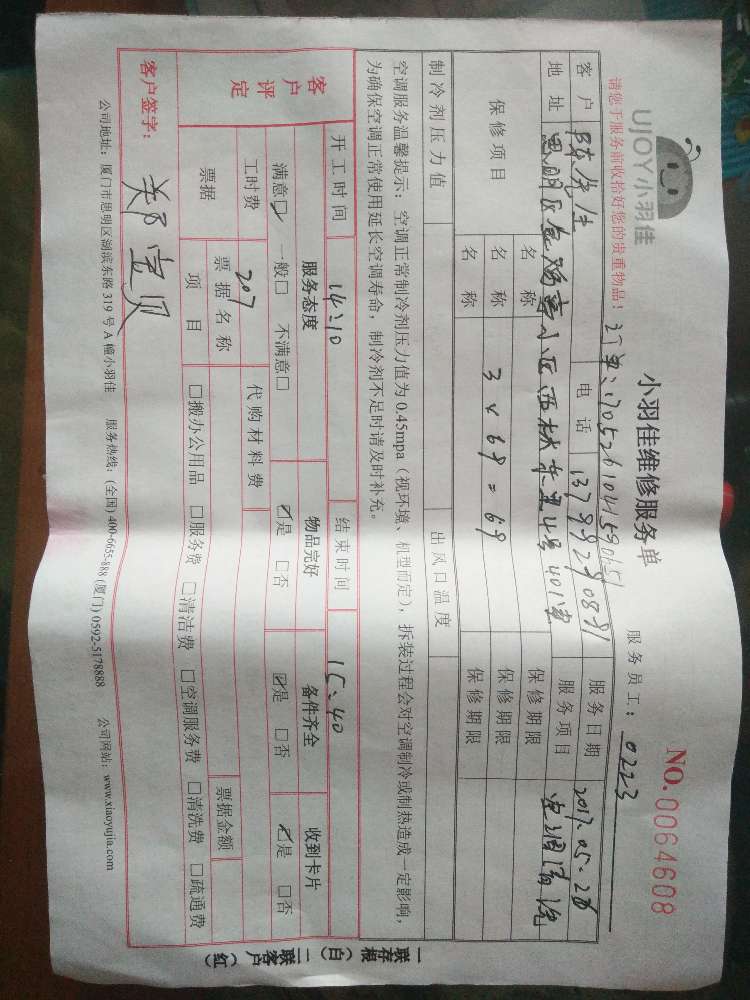 UJOY小羽佳
小羽佳维修服务单
NO.0064608
请您于服务前收拾好您的贵重物品!
服务员工: 0223
客户 陈先生 电话 服务日期 2017.05.28
地址 服务项目 空调清洗
保修项目 名称 保修期限
名称 3×69=69 保修期限
名称 保修期限
制冷剂压力值 出风口温度
空调服务温馨提示:空调正常制冷剂压力值为0.45mpa(视环境、机型而定),拆装过程会对空调制冷或制热造成一定影响,
为确保空调正常使用延长空调寿命,制冷剂不足时请及时补充。
开工时间 14:10 结束时间 15:40
客户评定 服务态度 物品完好 备件齐全 收到卡片
满意☑ 一般□ 不满意□ ☑是 □否 ☑是 □否 ☑是 □否
工时费 207 代购材料费
票据 票据名称 票据金额
项目 □搬办公用品 □服务费 □清洁费 □空调服务费 □清洗费 □疏通费
客户签字: 郑宝贝
公司地址:厦门市思明区湖滨东路319号A幢小羽佳 服务热线:(全国)400-6655-888(厦门)0592-5178888 公司网站:www.xiaoyujia.com
一联存根(白)二联客户(红)